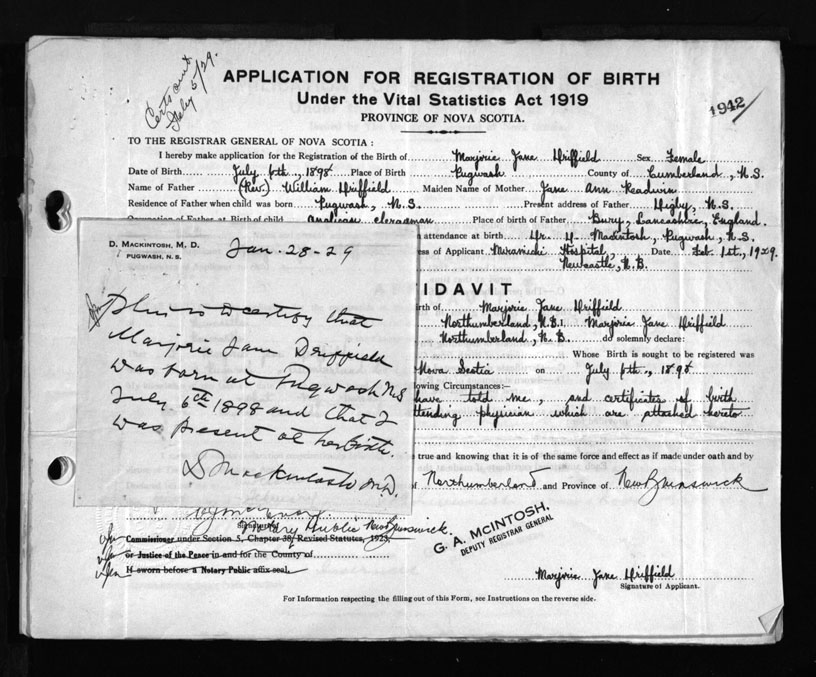 Certs sent
Feby 5/29.
APPLICATION FOR REGISTRATION OF BIRTH
Under the Vital Statistics Act 1919
PROVINCE OF NOVA SCOTIA.
1942
TO THE REGISTRAR GENERAL OF NOVA SCOTIA:
I hereby make application for the Registration of the Birth of Marjorie Jane Driffield Sex Female
Date of Birth July 6th., 1898 Place of Birth Pugwash County of Cumberland, N.S.
Name of Father (Rev.) William Driffield Maiden Name of Mother Jane Ann Readwin
Residence of Father when child was born Pugwash, N.S. Present address of Father Digby, N.S.
Occupation of Father at Birth of child Anglican clergyman Place of birth of Father Bury, Lancashire, England.
n attendance at birth Dr. D. Mackintosh, Pugwash, N.S.
ess of Applicant Miramichi Hospital, Date Feb. 1st., 1929.
Newcastle, N.B.
D. MACKINTOSH, M. D.
PUGWASH, N. S.
Jan. 28-29
This is to certify that
Marjorie Jane Driffield
was born at Pugwash NS
July 6th 1898 and that I
was present at her birth.
D Mackintosh M.D.
IDAVIT
rth of Marjorie Jane Driffield
Northumberland, N.B. I Marjorie Jane Driffield
Northumberland, N.B. do solemnly declare:
Whose Birth is sought to be registered was
Nova Scotia on July 6th., 1898
lowing Circumstances:—
have told me, and certificates of birth
ttending physician which are attached hereto
true and knowing that it is of the same force and effect as if made under oath and by
of Northumberland and Province of New Brunswick
Notary Public New Brunswick.
Commissioner under Section 5, Chapter 38, Revised Statutes, 1923,
or Justice of the Peace in and for the County of
If sworn before a Notary Public affix seal.
G. A. MCINTOSH,
DEPUTY REGISTRAR GENERAL
Marjorie Jane Driffield
Signature of Applicant.
For Information respecting the filling out of this Form, see Instructions on the reverse side.